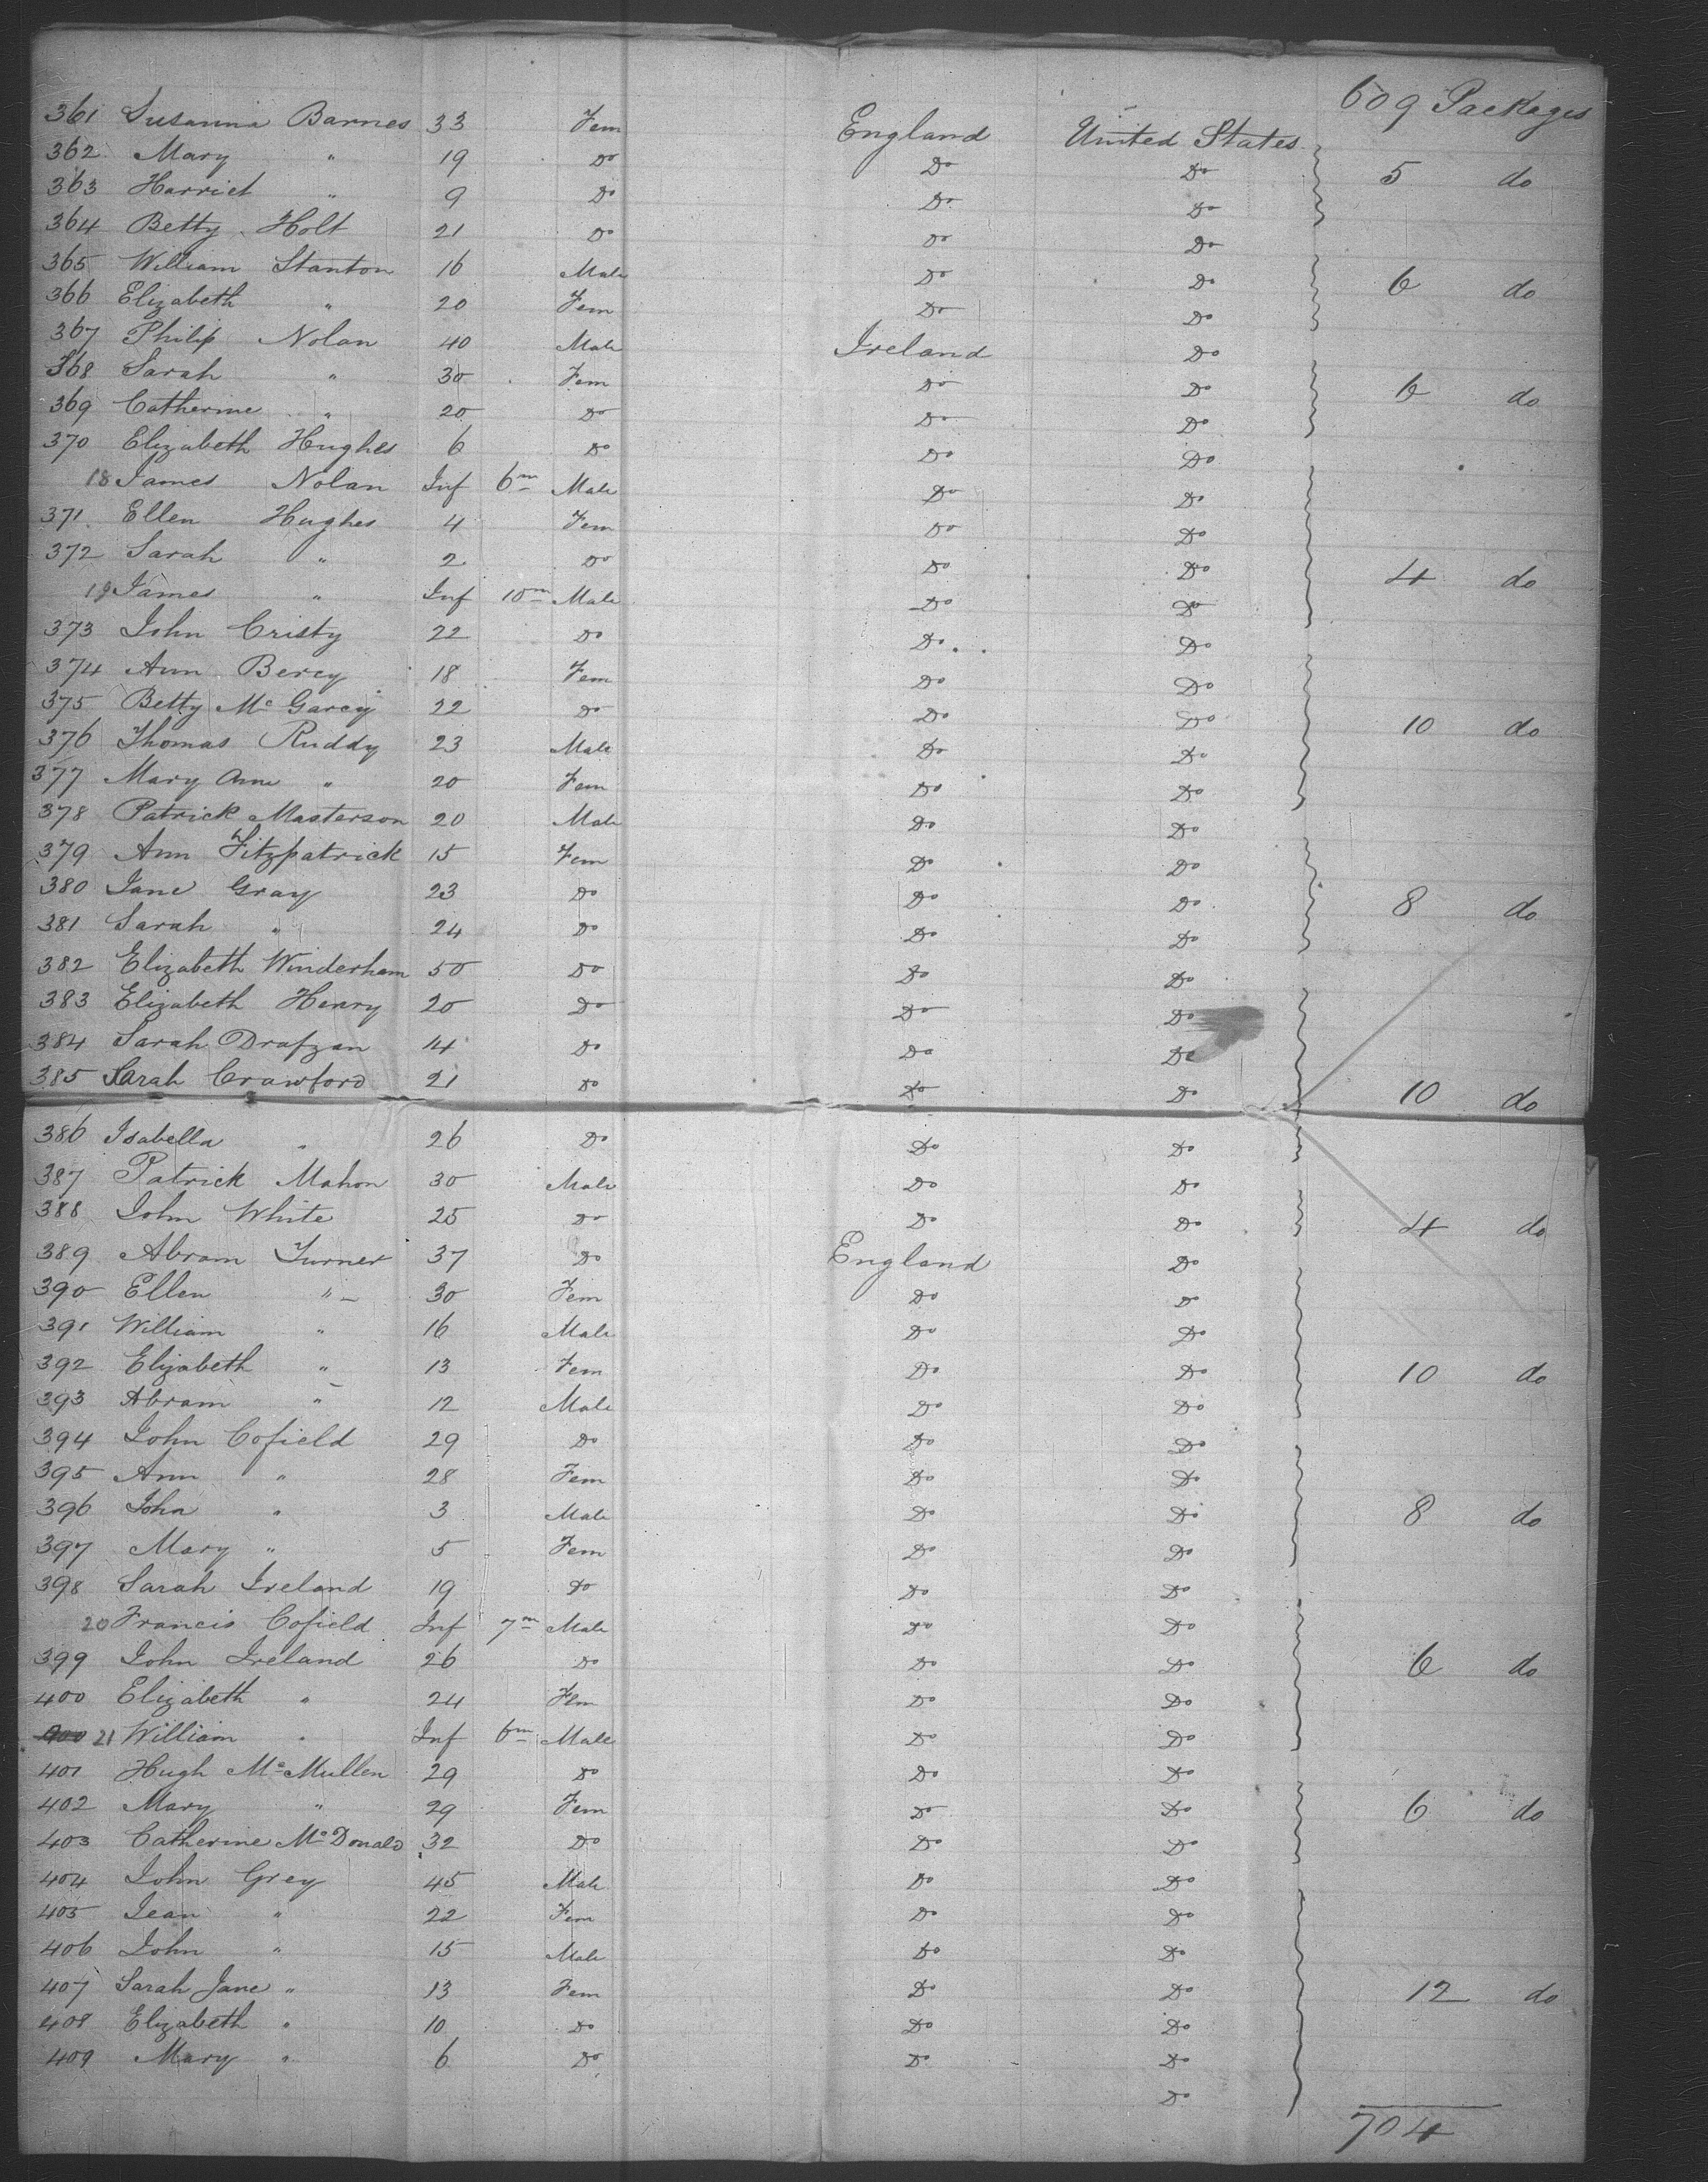 609 Packages
361 Susanna Barnes 33 Fem England United States
362 Mary " 19 Do Do Do 5 do
363 Harriet " 9 Do Do Do
364 Betty Holt 21 Do Do Do
365 William Stanton 16 Male Do Do 6 do
366 Elizabeth " 20 Fem Do Do
367 Philip Nolan 40 Male Ireland Do
368 Sarah " 30 Fem Do Do 6 do
369 Catherine " 20 Do Do Do
370 Elizabeth Hughes 6 Do Do Do
18 James Nolan Inf 6m Male Do Do
371 Ellen Hughes 4 Fem Do Do
372 Sarah " 2 Do Do Do 4 do
19 James " Inf 10m Male Do Do
373 John Cristy 22 Do Do Do
374 Ann Bercy 18 Fem Do Do
375 Betty Mc Garcy 22 Do Do Do 10 do
376 Thomas Ruddy 23 Male Do Do
377 Mary Ann " 20 Fem Do Do
378 Patrick Masterson 20 Male Do Do
379 Ann Fitzpatrick 15 Fem Do Do
380 Jane Gray 23 Do Do Do 8 do
381 Sarah " 24 Do Do Do
382 Elizabeth Winderham 50 Do Do Do
383 Elizabeth Henry 20 Do Do Do
384 Sarah 14 Do Do Do
385 Sarah Crawford 21 Do Do Do 10 do
386 Isabella " 26 Do Do Do
387 Patrick Mahon 30 Male Do Do
388 John White 25 Do Do Do 4 do
389 Abram Turner 37 Do England Do
390 Ellen " 30 Fem Do Do
391 William " 16 Male Do Do
392 Elizabeth " 13 Fem Do Do 10 do
393 Abram " 12 Male Do Do
394 John Cofield 29 Do Do Do
395 Ann " 28 Fem Do Do
396 John " 3 Male Do Do 8 do
397 Mary " 5 Fem Do Do
398 Sarah Ireland 19 Do Do Do
20 Francis Cofield Inf 7m Male Do Do
399 John Ireland 26 Do Do Do 6 do
400 Elizabeth " 24 Fem Do Do
21 William " Inf 6m Male Do Do
401 Hugh Mc Mullen 29 Do Do Do
402 Mary " 29 Fem Do Do 6 do
403 Catherine Mc Donald 32 Do Do Do
404 John Grey 45 Male Do Do
405 Jean " 22 Fem Do Do
406 John " 15 Male Do Do
407 Sarah Jane " 13 Fem Do Do 12 do
408 Elizabeth " 10 Do Do Do
409 Mary " 6 Do Do Do
Do
704